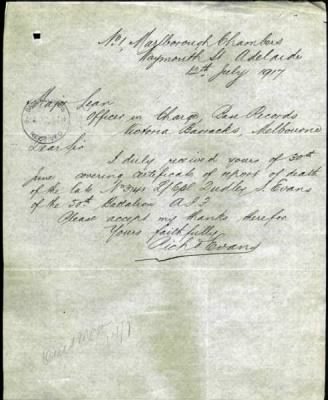 No 1 Marlborough Chambers
Waymouth St Adelaide
12th July 1917
Major Lean
Officer in Charge, Base Records
Victoria Barracks, Melbourne
Dear Sir
I duly received yours of 30th
June covering certificate of report of death
of the late No 3141 Cpl Dudley S. Evans
of the 50th Battalion A.I.F
Please accept my thanks therefor
Yours faithfully
Rich d Evans